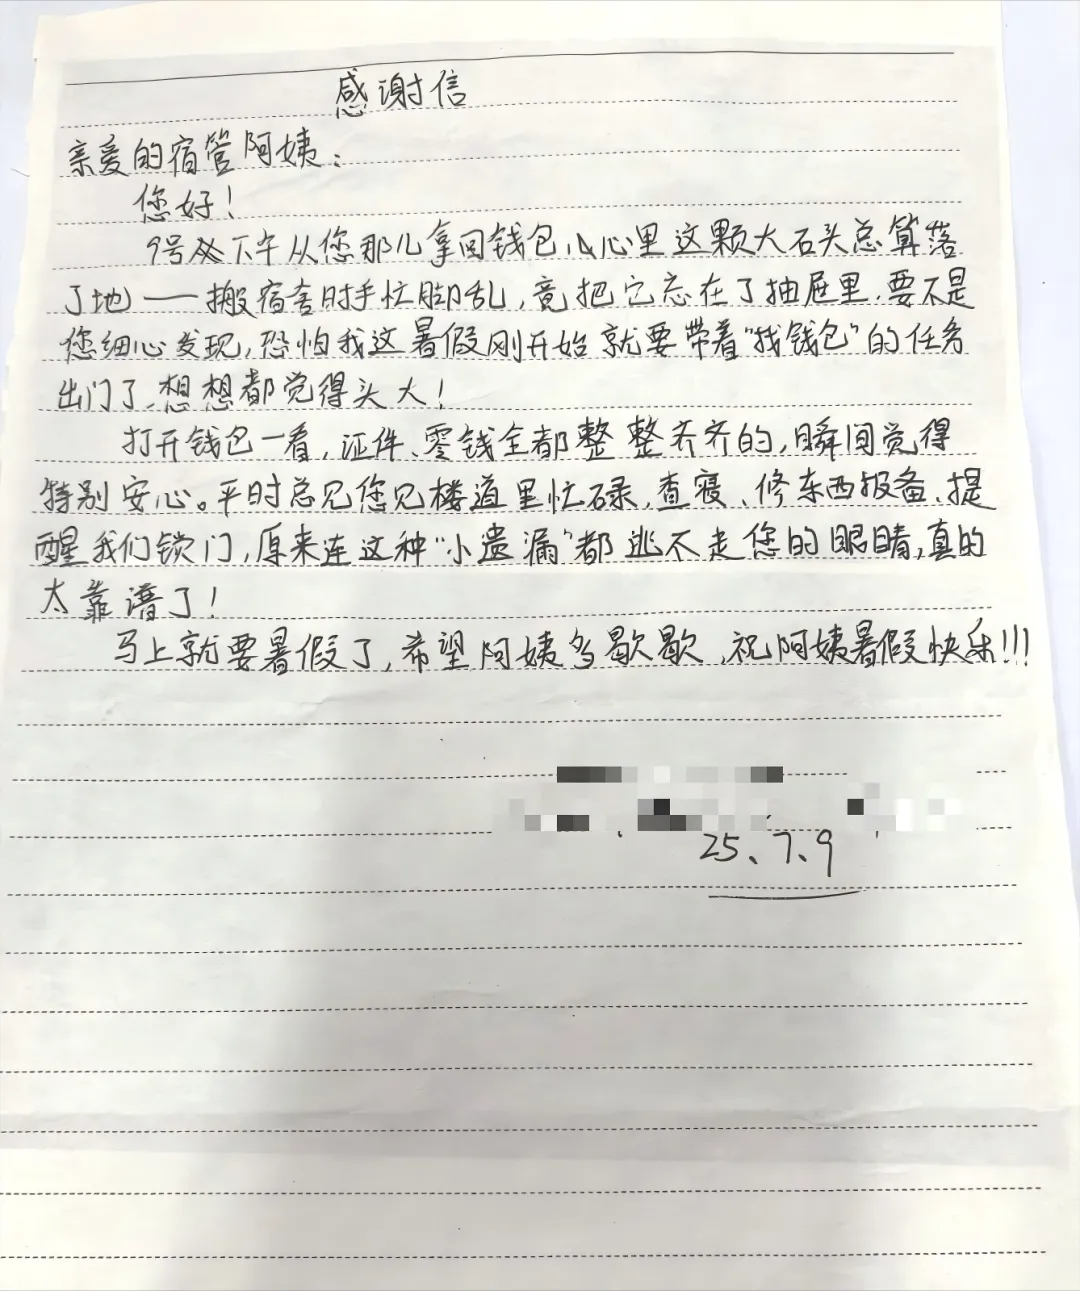 感谢信
亲爱的宿管阿姨：
您好！
9号下午从您那儿拿回钱包，心里这颗大石头总算落
了地——搬宿舍时手忙脚乱，竟把它忘在了抽屉里，要不是
您细心发现，恐怕我这暑假刚开始就要带着“找钱包”的任务
出门了，想想都觉得头大！
打开钱包一看，证件、零钱全都整整齐齐的，瞬间觉得
特别安心。平时总见您见楼道里忙碌，查寝、修东西报备、提
醒我们锁门，原来连这种“小遗漏”都逃不走您的眼睛，真的
太靠谱了！
马上就要暑假了，希望阿姨多歇歇，祝阿姨暑假快乐!!!
25、7、9